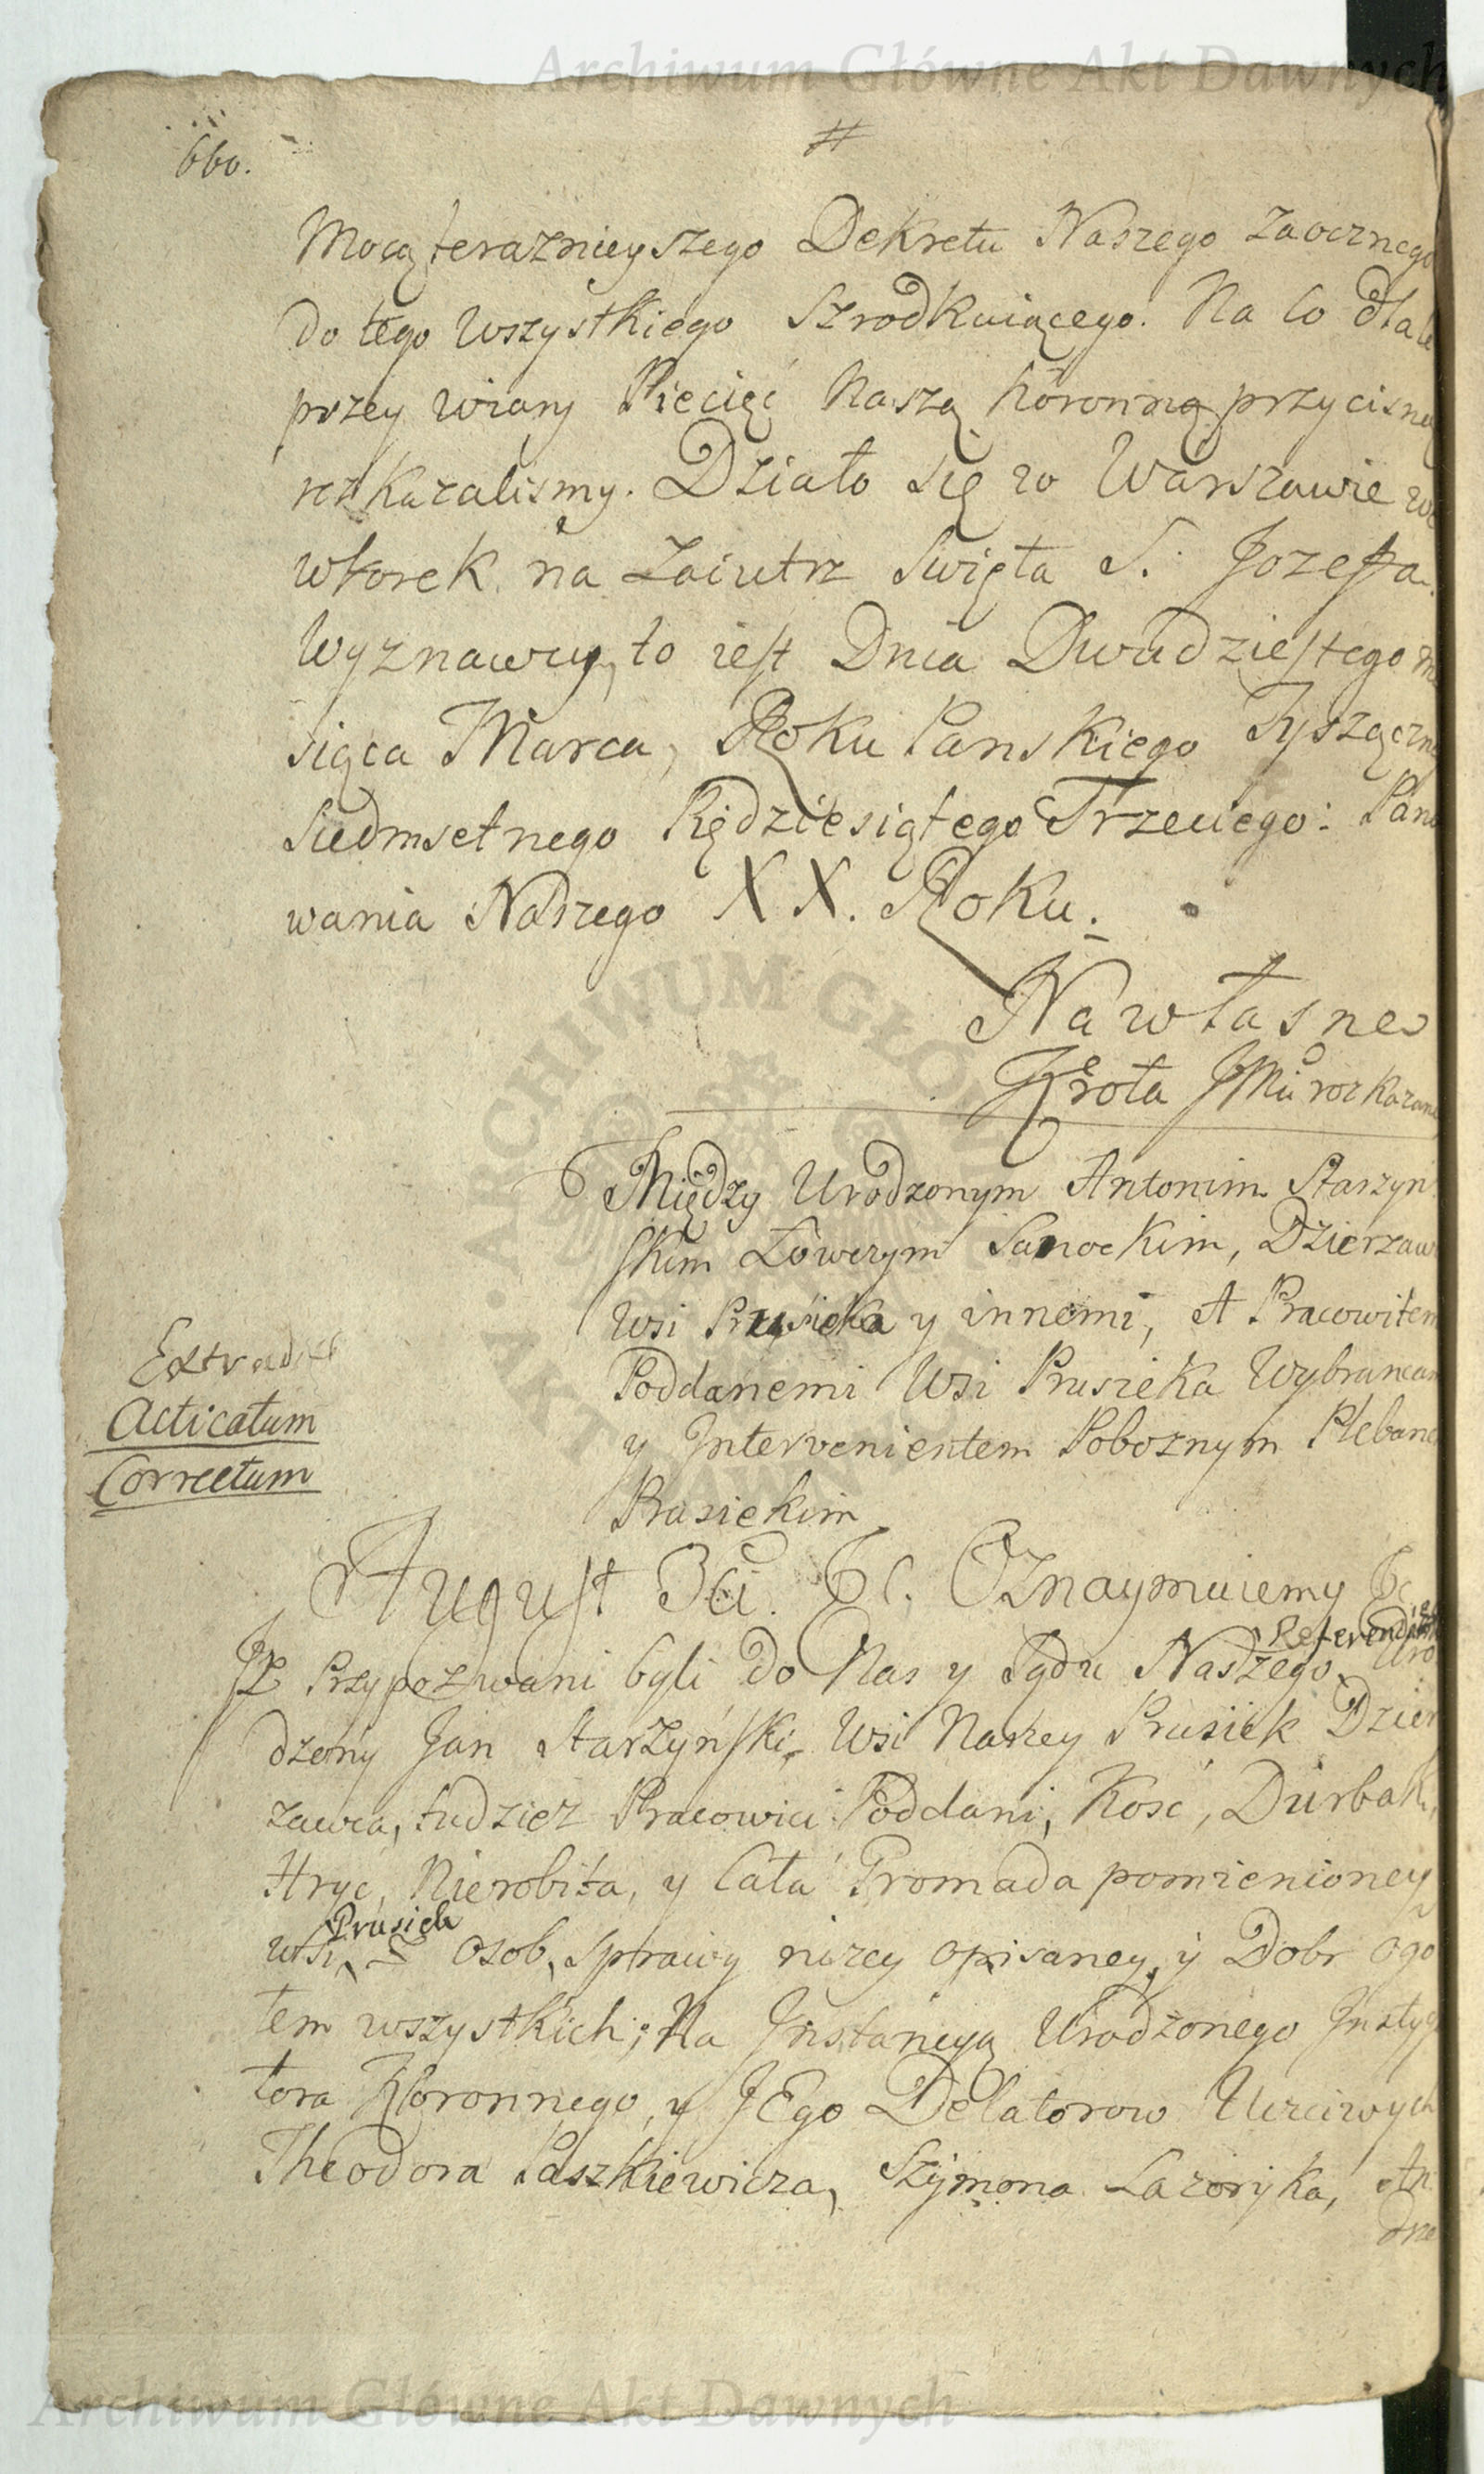 Archiwum Główne Akt Dawnych
660.
#
Mocą teraznieyszego Dekretu Naszego zaocznego
do tego wszystkiego szrodkuiącego. Na co dla le
przey wiary Pieczęć Naszą koronną przycisną
rozkazalismy. Działo się w Warszawie we
wtorek na zaiutrz swięta S. Jozefa
Wyznawcy, to iest Dnia Dwudziestego m
siąca Marca, Roku Panskiego Tyszączn
siedmsetnego Pędziesiątego Trzeciego: Pano
wania Naszego XX. Roku.
Na własne
Krola JMci rozkazan
Między Urodzonym Antonim Starzyn
skim Łowczym Sanockim, Dzierzaw
wsi Prusieka y innemi, A Pracowitem
Poddanemi Wsi Prusieka Wybrancam
y Intervenientem Poboznym Pleban
Prusiekim
Extraditum
Acticatum
Correctum
August 3ci. Ec. Oznaymuiemy Ec
Iż Przypozwani byli do Nas y Sądu Naszego Referendar Uro
dzony Jan Starzyński, Wsi Naszey Prusiek Dzier
zawca, tudziez Pracowici Poddani, Kosć, Durbak,
Hryć, Nierobiła, y cała Gromada pomienioney
wsi Prusiek z osob, sprawy nizey opisaney, y Dobr ogo
łem wszystkich; Na Instancyą Urodzonego Instyg
tora Koronnego, y JEgo Delatorow Uczciwych
Theodora Paszkiewicza, Szymona Lazoryka, An
dne
Archiwum Główne Akt Dawnych